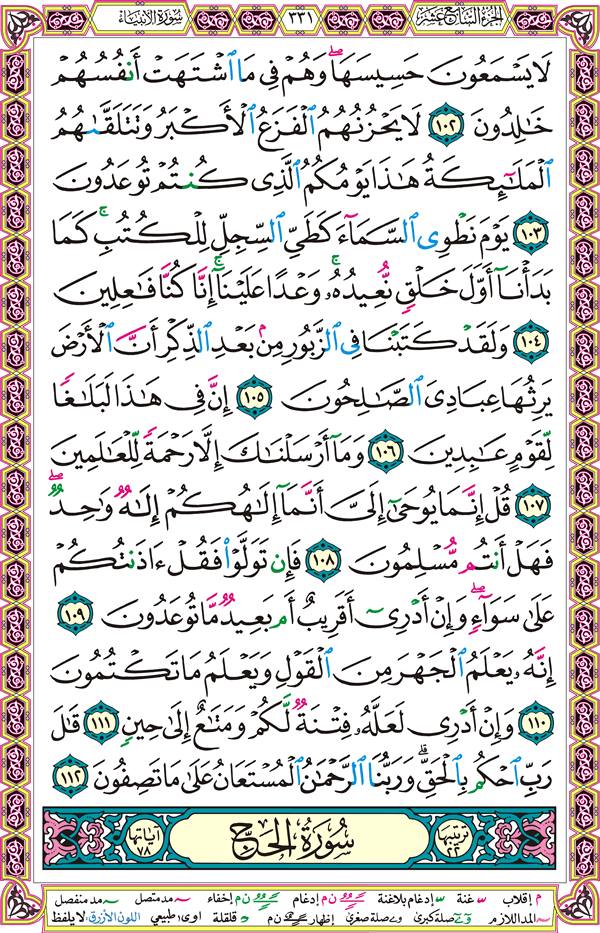 الجزء السابع عشر ٣٣١ سورة الأنبياء
لَا يَسْمَعُونَ حَسِيسَهَا ۖ وَهُمْ فِي مَا اشْتَهَتْ أَنفُسُهُمْ
خَالِدُونَ ١٠٢ لَا يَحْزُنُهُمُ الْفَزَعُ الْأَكْبَرُ وَتَتَلَقَّاهُمُ
الْمَلَائِكَةُ هَٰذَا يَوْمُكُمُ الَّذِي كُنتُمْ تُوعَدُونَ
١٠٣ يَوْمَ نَطْوِي السَّمَاءَ كَطَيِّ السِّجِلِّ لِلْكُتُبِ ۚ كَمَا
بَدَأْنَا أَوَّلَ خَلْقٍ نُّعِيدُهُ ۚ وَعْدًا عَلَيْنَا ۚ إِنَّا كُنَّا فَاعِلِينَ
١٠٤ وَلَقَدْ كَتَبْنَا فِي الزَّبُورِ مِن بَعْدِ الذِّكْرِ أَنَّ الْأَرْضَ
يَرِثُهَا عِبَادِيَ الصَّالِحُونَ ١٠٥ إِنَّ فِي هَٰذَا لَبَلَاغًا
لِّقَوْمٍ عَابِدِينَ ١٠٦ وَمَا أَرْسَلْنَاكَ إِلَّا رَحْمَةً لِّلْعَالَمِينَ
١٠٧ قُلْ إِنَّمَا يُوحَىٰ إِلَيَّ أَنَّمَا إِلَٰهُكُمْ إِلَٰهٌ وَاحِدٌ ۖ
فَهَلْ أَنتُم مُّسْلِمُونَ ١٠٨ فَإِن تَوَلَّوْا فَقُلْ ءَاذَنتُكُمْ
عَلَىٰ سَوَاءٍ ۖ وَإِنْ أَدْرِي أَقَرِيبٌ أَم بَعِيدٌ مَّا تُوعَدُونَ ١٠٩
إِنَّهُ يَعْلَمُ الْجَهْرَ مِنَ الْقَوْلِ وَيَعْلَمُ مَا تَكْتُمُونَ
١١٠ وَإِنْ أَدْرِي لَعَلَّهُ فِتْنَةٌ لَّكُمْ وَمَتَاعٌ إِلَىٰ حِينٍ ١١١ قَالَ
رَبِّ احْكُم بِالْحَقِّ ۗ وَرَبُّنَا الرَّحْمَٰنُ الْمُسْتَعَانُ عَلَىٰ مَا تَصِفُونَ ١١٢
ترتيبها ٢٢ سورة الحج آياتها ٧٨
م إقلاب س غنة س إدغام بلاغنة ن م إدغام إخفاء ~ مد متصل ~ مد منفصل
~ المد اللازم صلة كبرى صلة صغرى إظهار ن م قلقلة اوى طبيعي اللون الأزرق لا يلفظ